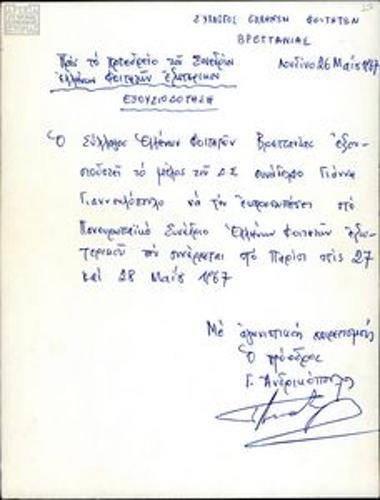 ΣΥΛΛΟΓΟΣ ΕΛΛΗΝΩΝ ΦΟΙΤΗΤΩΝ
ΒΡΕΤΤΑΝΙΑΣ
Πρὸς τὸ προεδρεῖο τοῦ Συνεδρίου
Ἑλλήνων Φοιτητῶν Ἐξωτερικοῦ
Λονδῖνο 26 Μαΐου 1967
ΕΞΟΥΣΙΟΔΟΤΗΣΗ
Ὁ Σύλλογος Ἑλλήνων Φοιτητῶν Βρεττανίας ἐξου-
σιοδοτεῖ τὸ μέλος τοῦ Δ.Σ. συνάδελφο Γιάννη
Γιαννουλόπουλο νὰ τὸν ἐκπροσωπήσει στὸ
Πανευρωπαϊκὸ Συνέδριο Ἑλλήνων Φοιτητῶν Ἐξω-
τερικοῦ ποὺ συνέρχεται στὸ Παρίσι στὶς 27
καὶ 28 Μαΐου 1967
Μὲ ἀγωνιστικοὺς χαιρετισμοὺς
Ὁ πρόεδρος
Γ. Ἀνδρικόπουλος